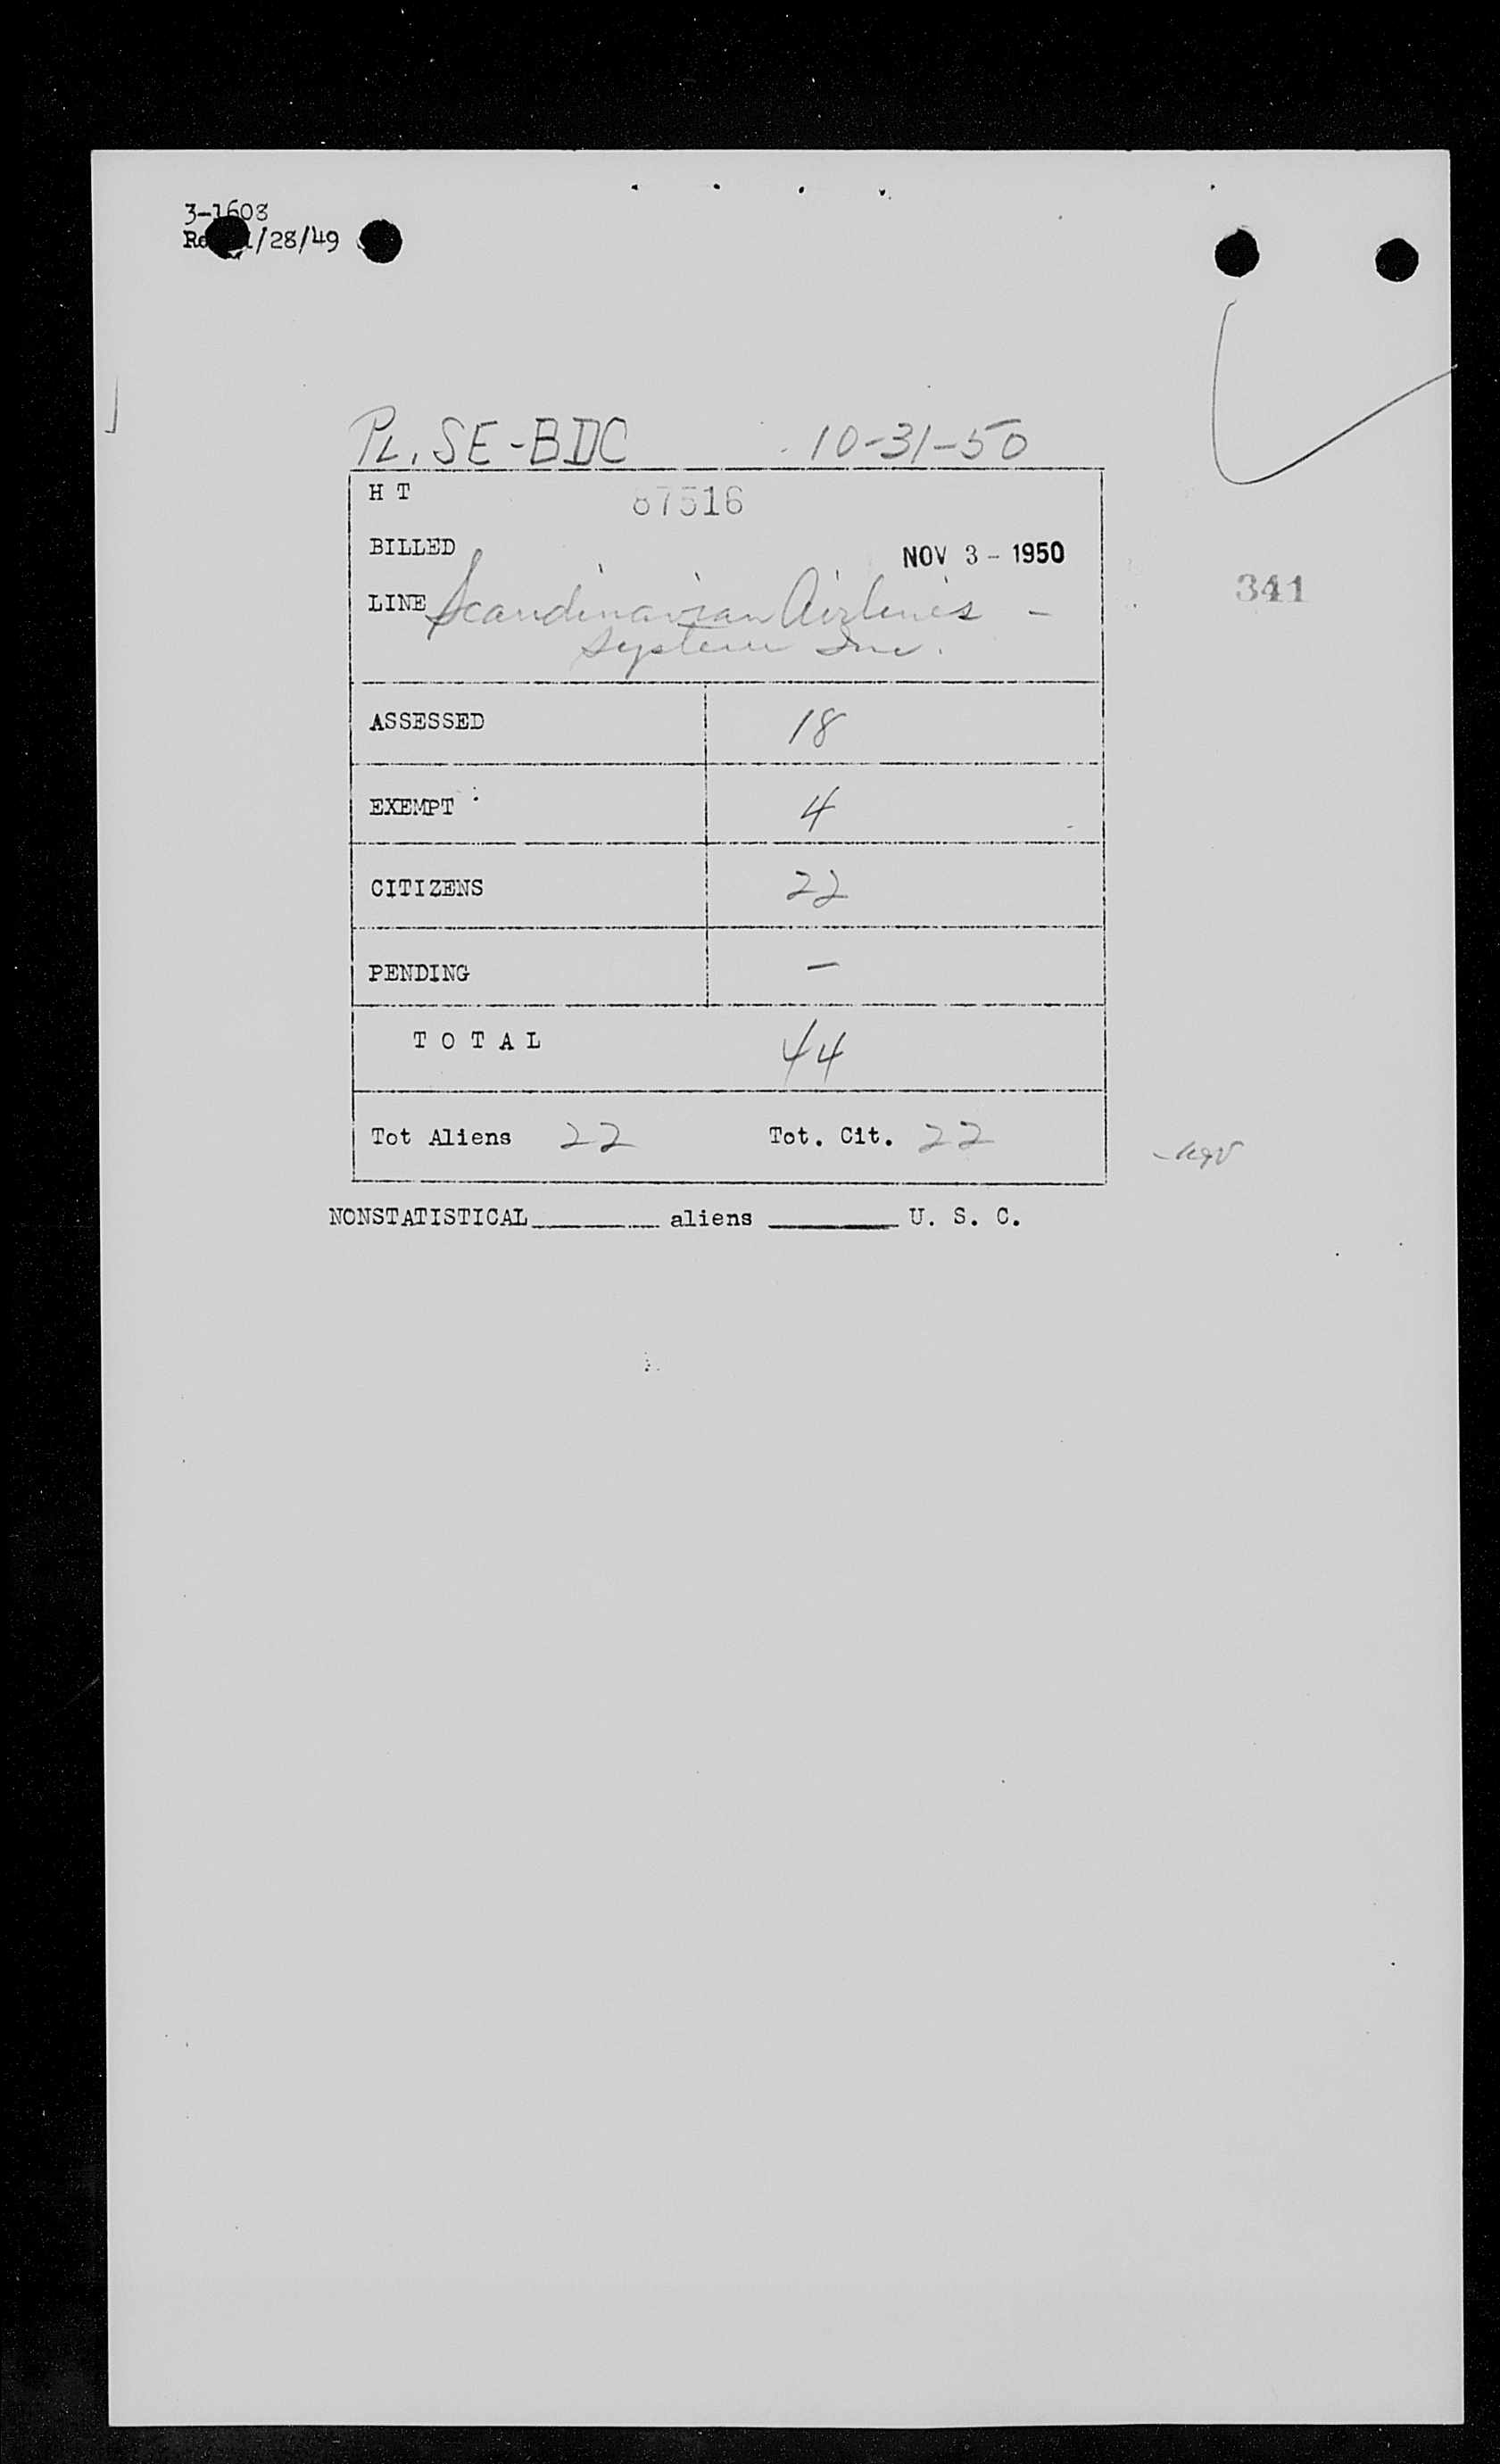 3-1608
/28/49
PL. SE-BDC 10-31-50
H T 87516
BILLED NOV 3 - 1950
341
LINE Scandinavian Airlines -
System Inc.
ASSESSED 18
EXEMPT 4
CITIZENS 22
PENDING -
T O T A L 44
Tot Aliens 22 Tot. Cit. 22
NONSTATISTICAL aliens U. S. C.